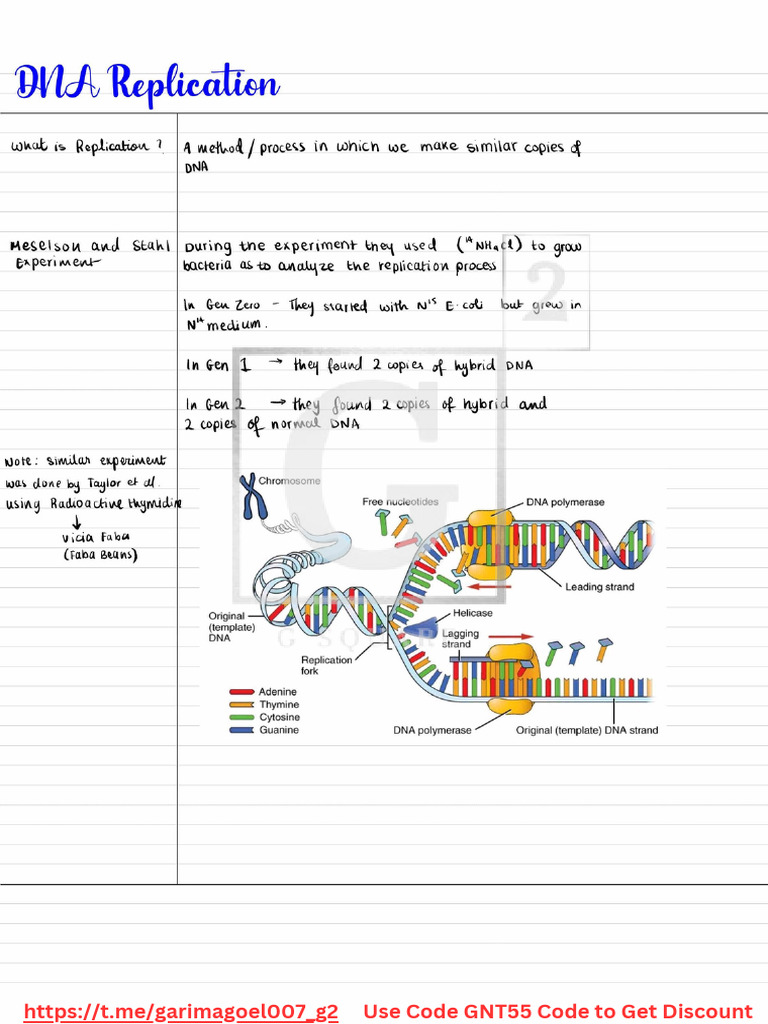 DNA Replication
What is Replication?
A method/process in which we make similar copies of
DNA
Meselson and Stahl
Experiment
During the experiment they used (¹⁴NH₄Cl) to grow
bacteria as to analyze the replication process
In Gen Zero - They started with N¹⁵ E.coli but grow in
N¹⁴ medium.
In Gen 1 → they found 2 copies of hybrid DNA
In Gen 2 → they found 2 copies of hybrid and
2 copies of normal DNA
Note: similar experiment
was done by Taylor et al.
using Radioactive thymidine
↓
Vicia Faba
(Faba Beans)
Chromosome
Free nucleotides
DNA polymerase
Leading strand
Original
(template)
DNA
Helicase
Lagging
strand
Replication
fork
Adenine
Thymine
Cytosine
Guanine
DNA polymerase
Original (template) DNA strand
2
G
G SQUAR
https://t.me/garimagoel007_g2 Use Code GNT55 Code to Get Discount